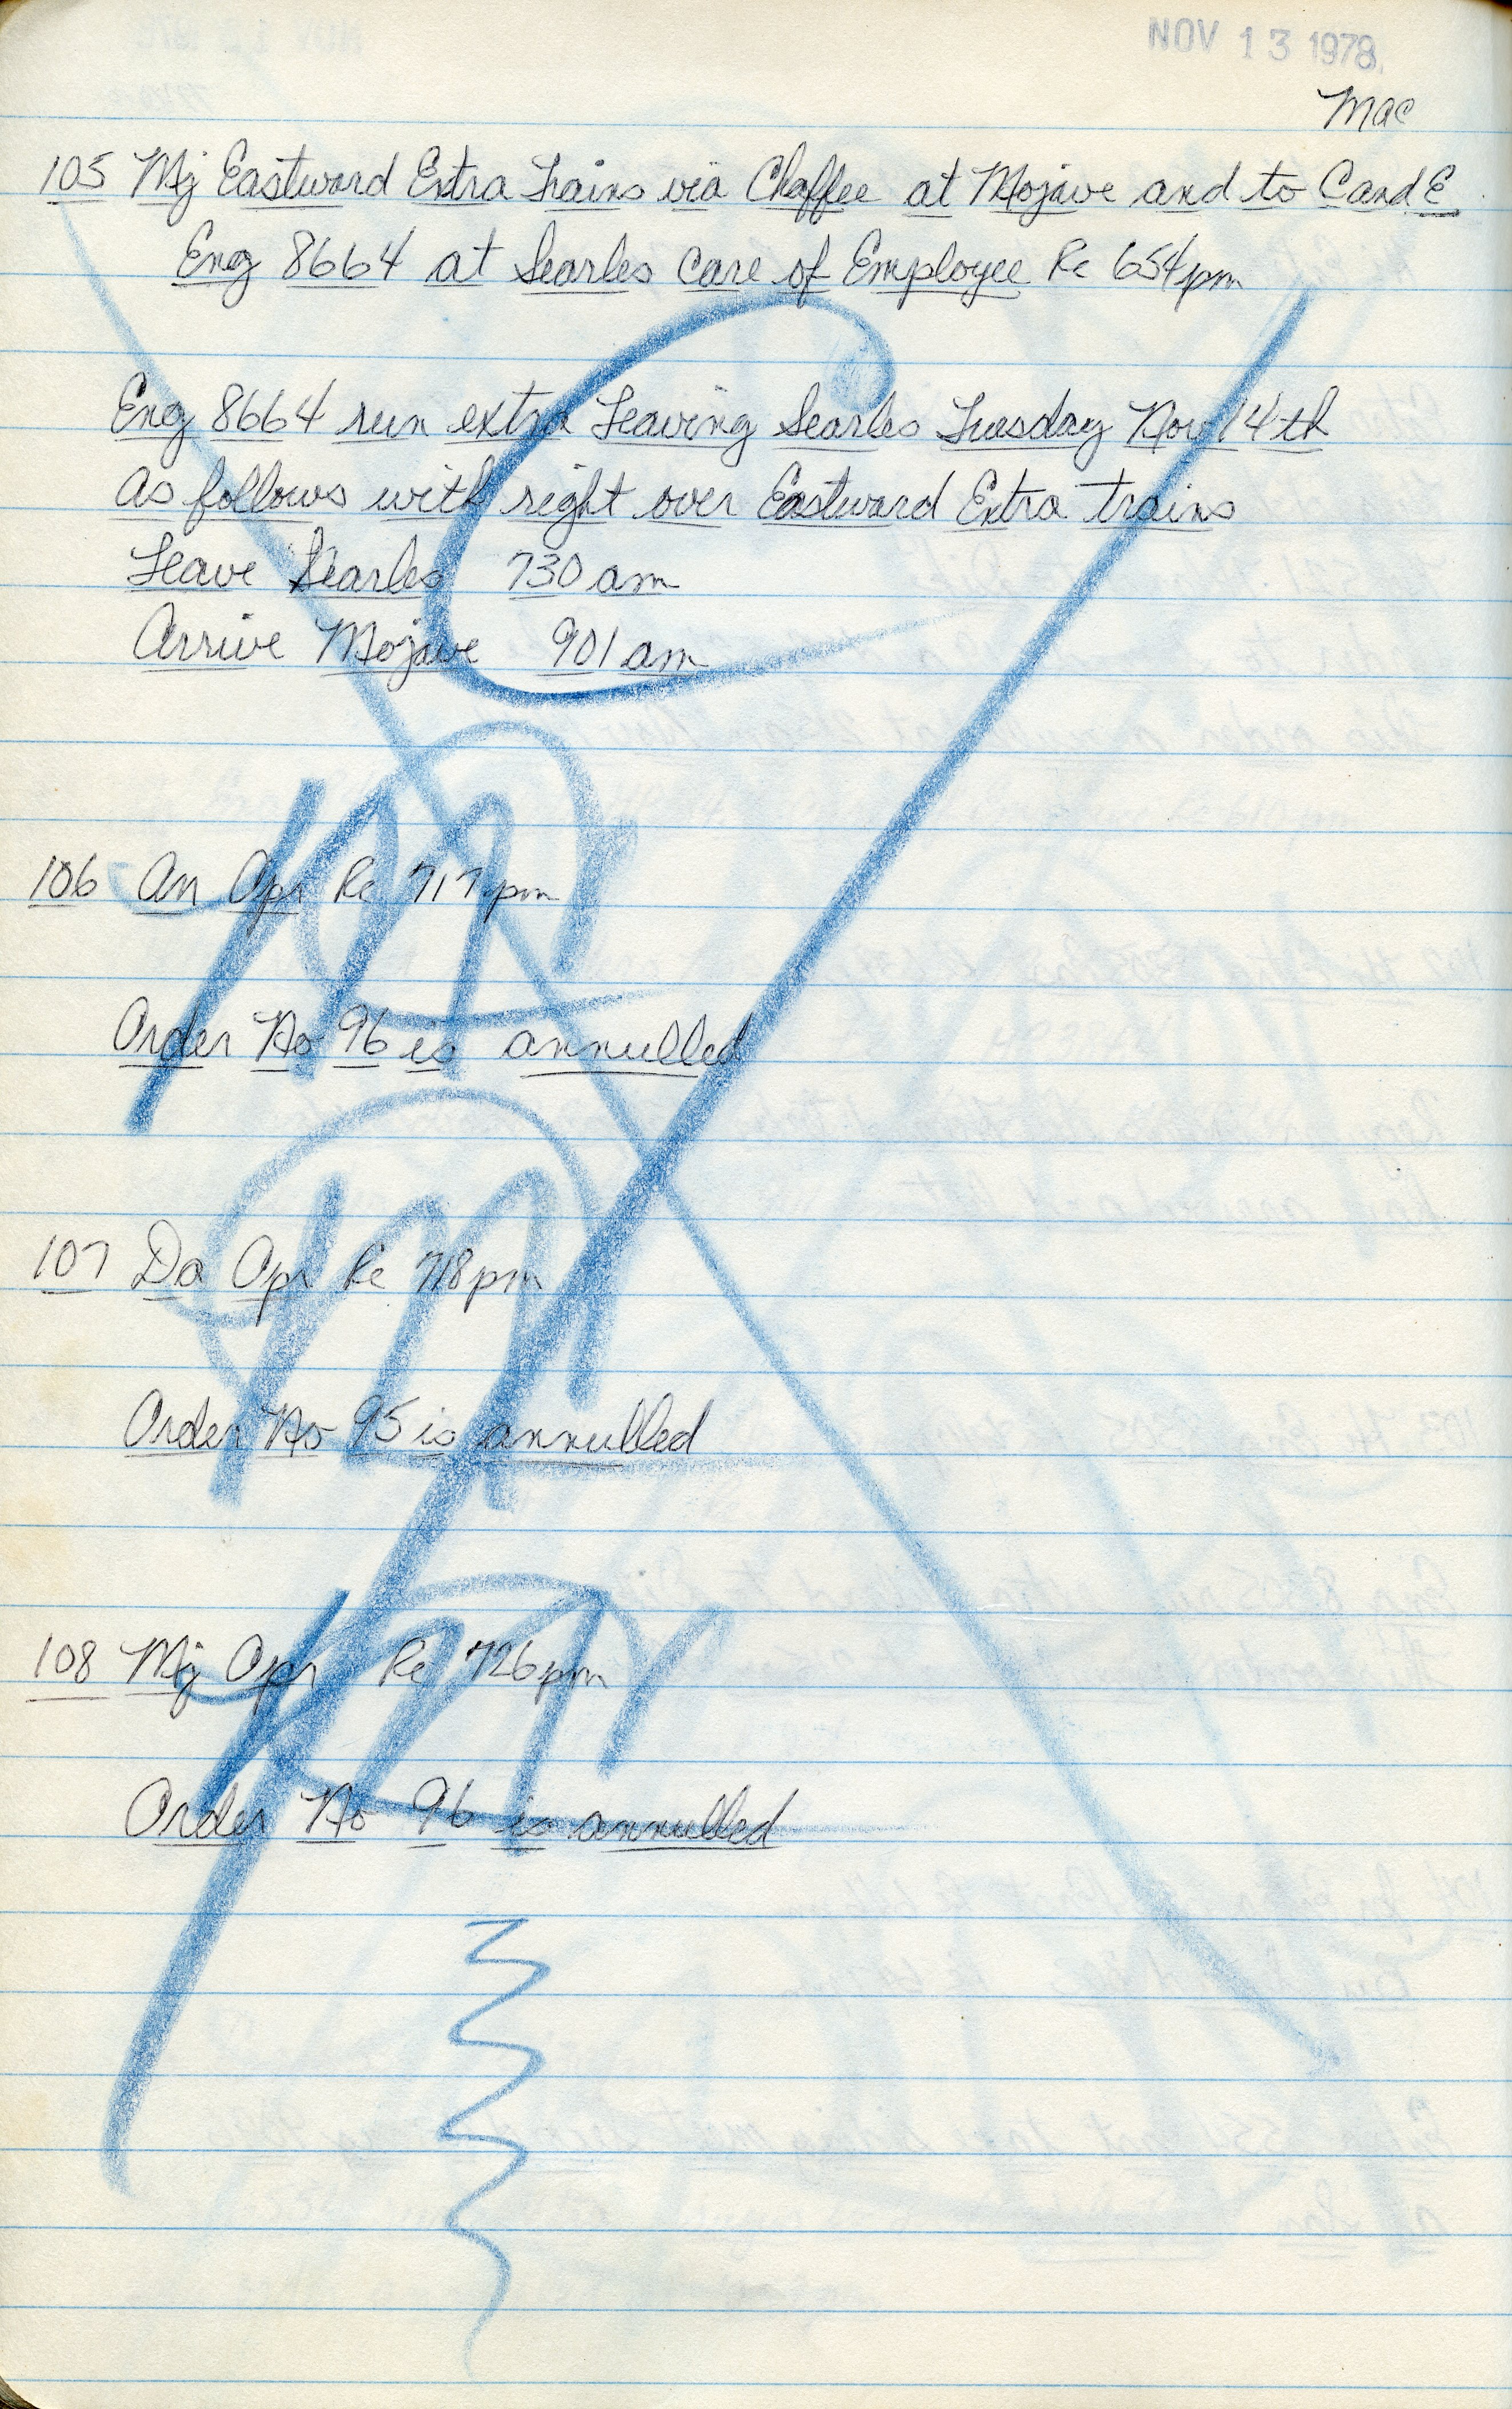 NOV 13 1978
Mac
105 Mj Eastward Extra Trains via Chaffee at Mojave and to C and E
Eng 8664 at Searles care of Employee Rc 654pm
Eng 8664 run extra Leaving Searles Tuesday Nov 14th
as follows with right over Eastward Extra trains
Leave Searles 730 am
Arrive Mojave 901 am
C
106 An Opr Rc 717pm
Order No 96 is annulled
107 Da Opr Rc 718pm
Order No 95 is annulled
108 Mj Opr Rc 726pm
Order No 96 is annulled